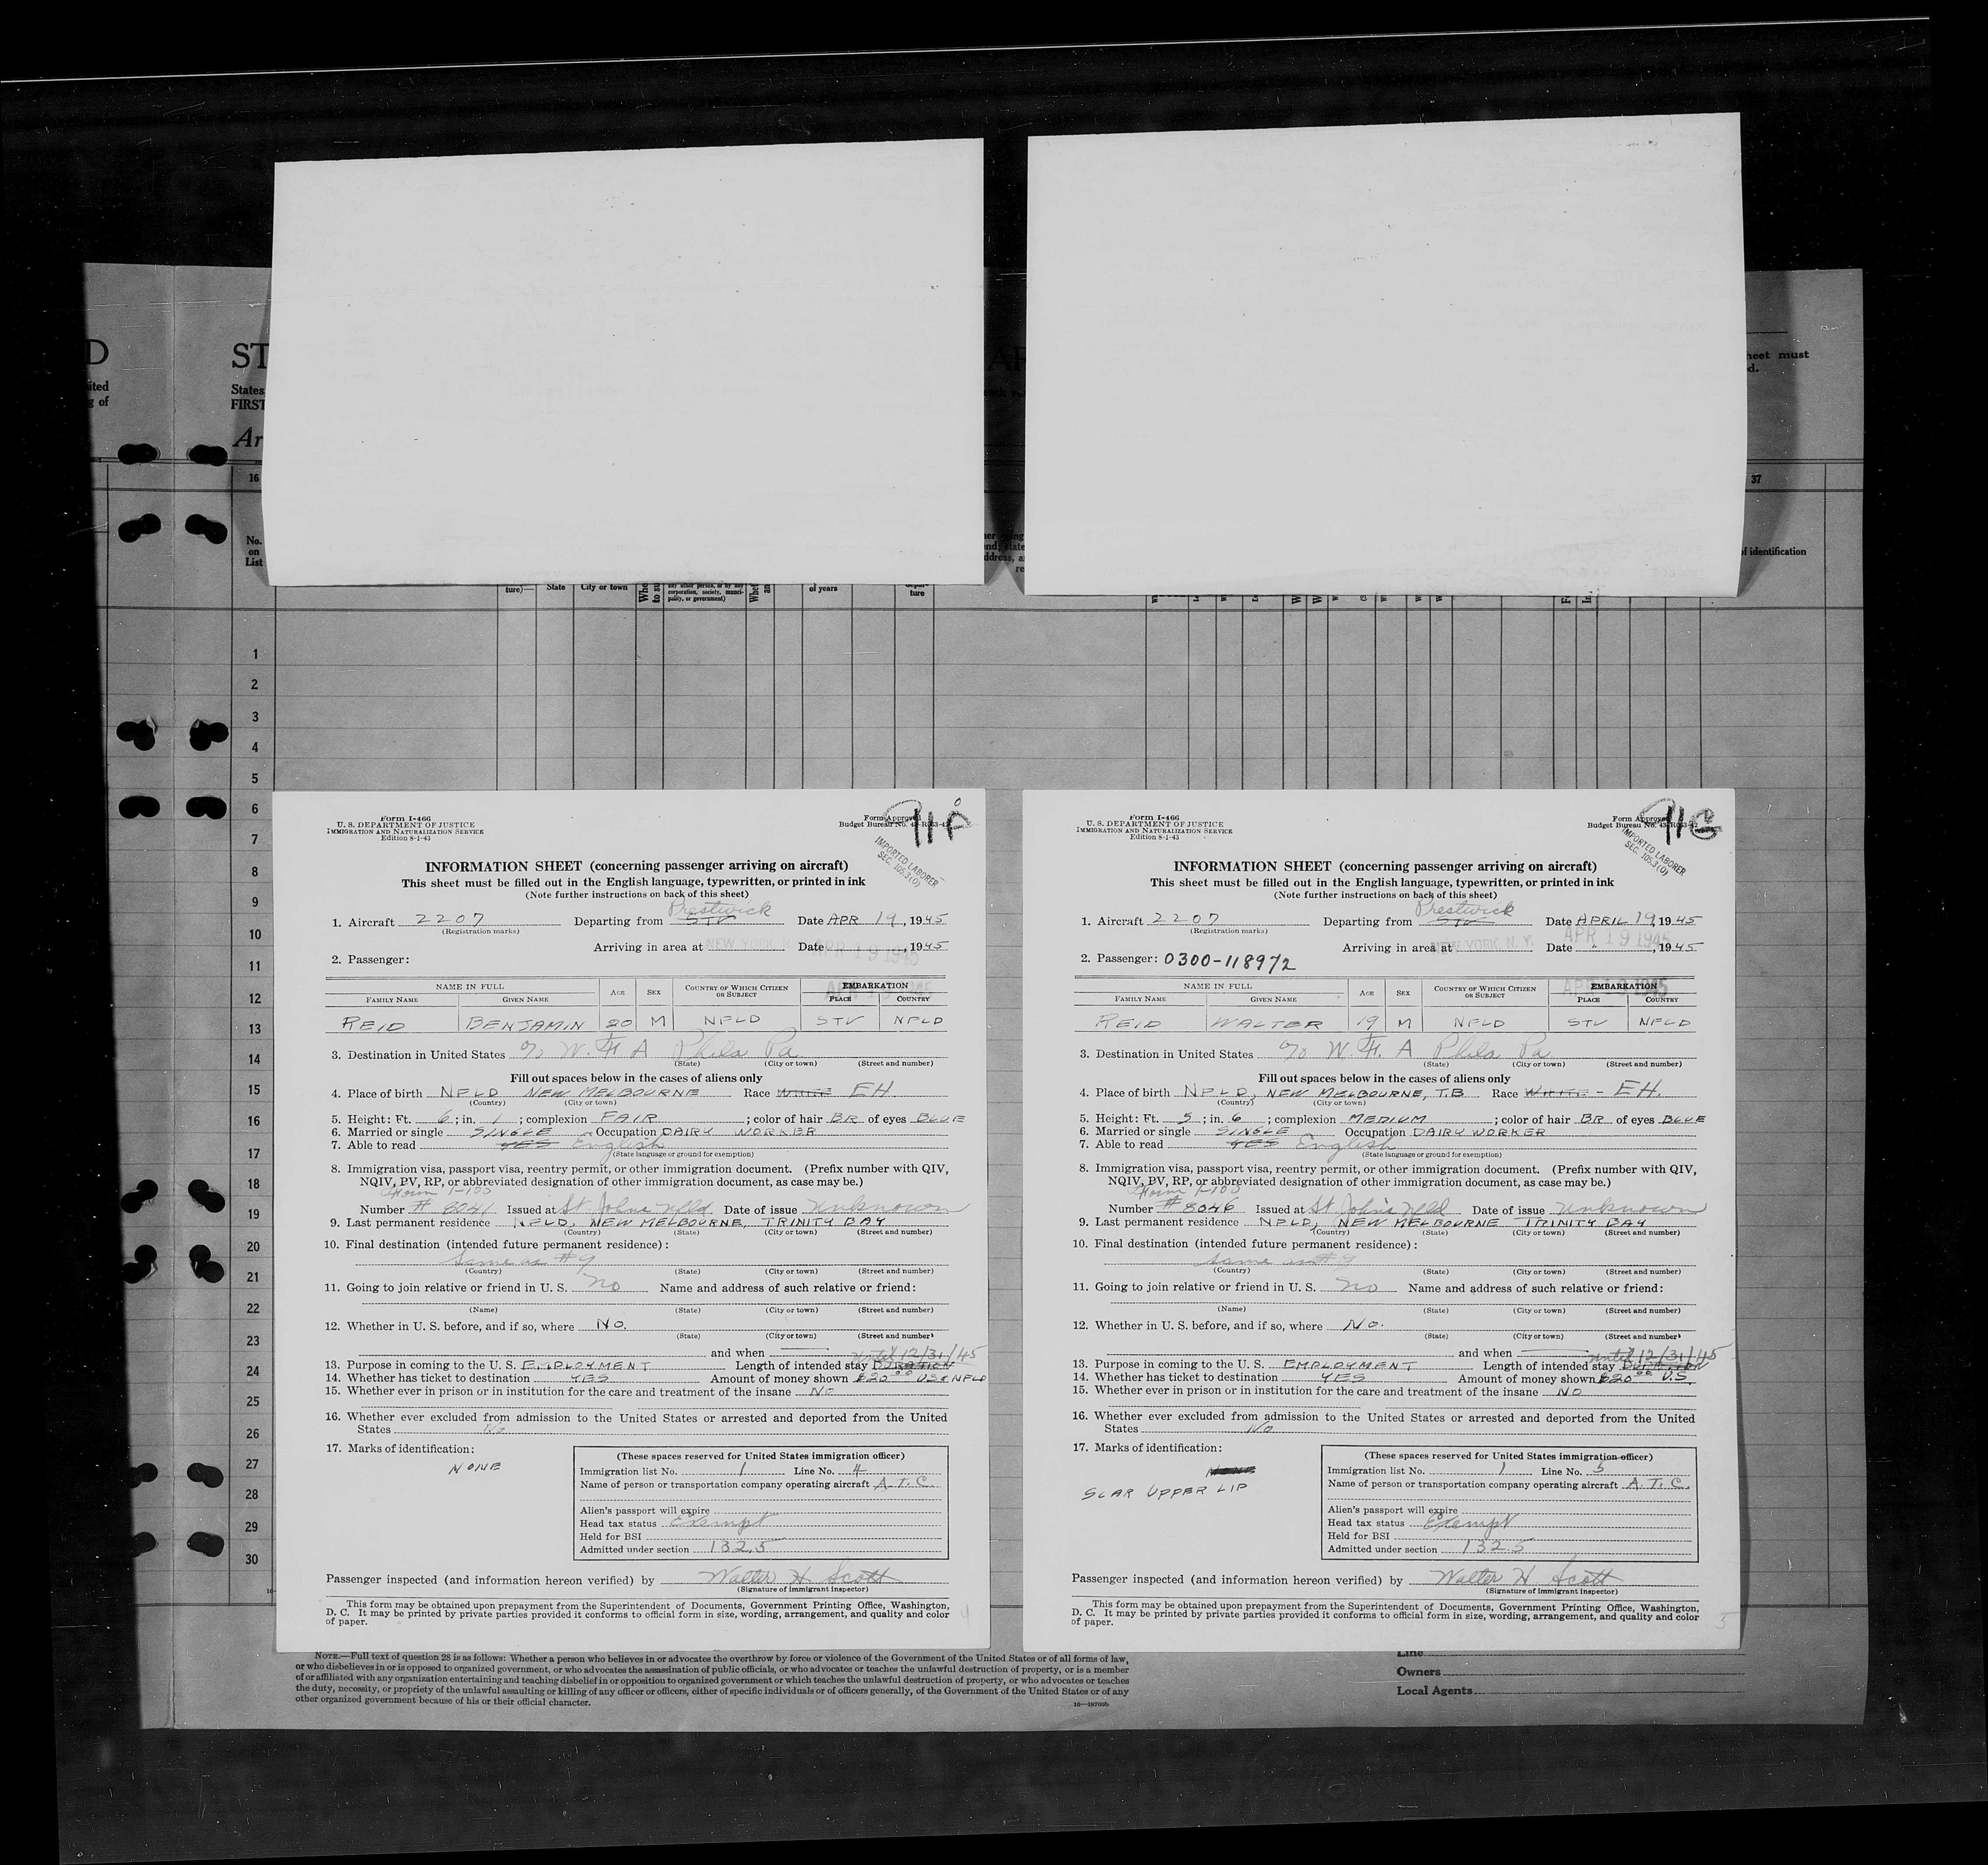 D
ited
g of
ST
States
FIRST
Ar
AR
heet must
d.
16
37
No.
on
List
of identification
ture)—
State
City or town
any other person, or by any
corporation, society, munici-
pality, or government)
of years
depar-
ture
1
2
3
4
5
6
7
8
9
10
11
12
13
14
15
16
17
18
19
20
21
22
23
24
25
26
27
28
29
30
Form I-466
U. S. DEPARTMENT OF JUSTICE
IMMIGRATION AND NATURALIZATION SERVICE
Edition 8-1-43
Form Approved
Budget Bureau No. 43-R043-42
11F
IMPORTED LABORER
SEC. 105.3(O)
INFORMATION SHEET (concerning passenger arriving on aircraft)
This sheet must be filled out in the English language, typewritten, or printed in ink
(Note further instructions on back of this sheet)
Prestwick
1. Aircraft 2207 Departing from STV Date APR 19, 1945
(Registration marks)
Arriving in area at NEW YORK Date APR 19 1945, 1945
2. Passenger:
NAME IN FULL AGE SEX COUNTRY OF WHICH CITIZEN OR SUBJECT EMBARKATION
FAMILY NAME GIVEN NAME PLACE COUNTRY
REID BENJAMIN 20 M NFLD STV NFLD
3. Destination in United States % W. F. A Phila Pa
(State) (City or town) (Street and number)
Fill out spaces below in the cases of aliens only
4. Place of birth NFLD NEW MELBOURNE Race WHITE EH.
(Country) (City or town)
5. Height: Ft. 6; in. 1; complexion FAIR; color of hair BR of eyes BLUE
6. Married or single SINGLE Occupation DAIRY WORKER
7. Able to read YES English
(State language or ground for exemption)
8. Immigration visa, passport visa, reentry permit, or other immigration document. (Prefix number with QIV,
NQIV, PV, RP, or abbreviated designation of other immigration document, as case may be.)
Form I-100
Number # 8041 Issued at St Johns Nfld Date of issue Unknown
9. Last permanent residence NFLD, NEW MELBOURNE, TRINITY BAY
(Country) (State) (City or town) (Street and number)
10. Final destination (intended future permanent residence):
Same as #9
(Country) (State) (City or town) (Street and number)
11. Going to join relative or friend in U. S. No Name and address of such relative or friend:
(Name) (State) (City or town) (Street and number)
12. Whether in U. S. before, and if so, where No.
(State) (City or town) (Street and number)
and when until 12/31/45
13. Purpose in coming to the U. S. EMPLOYMENT Length of intended stay DURATION
14. Whether has ticket to destination YES Amount of money shown $20.00 US & NFLD
15. Whether ever in prison or in institution for the care and treatment of the insane NO
16. Whether ever excluded from admission to the United States or arrested and deported from the United
States No
17. Marks of identification:
NONE
(These spaces reserved for United States immigration officer)
Immigration list No. 1 Line No. 4
Name of person or transportation company operating aircraft A.T.C.
Alien's passport will expire
Head tax status Exempt
Held for BSI
Admitted under section 132.5
Passenger inspected (and information hereon verified) by Walter H Scott
(Signature of immigrant inspector)
This form may be obtained upon prepayment from the Superintendent of Documents, Government Printing Office, Washington,
D. C. It may be printed by private parties provided it conforms to official form in size, wording, arrangement, and quality and color
of paper.
4
Form I-466
U. S. DEPARTMENT OF JUSTICE
IMMIGRATION AND NATURALIZATION SERVICE
Edition 8-1-43
Form Approved
Budget Bureau No. 43-R043-42
11G
IMPORTED LABORER
SEC. 105.3(O)
INFORMATION SHEET (concerning passenger arriving on aircraft)
This sheet must be filled out in the English language, typewritten, or printed in ink
(Note further instructions on back of this sheet)
Prestwick
1. Aircraft 2207 Departing from STV Date APRIL 19, 1945
(Registration marks)
Arriving in area at NEW YORK, N. Y. Date APR 19 1945 ", 1945
2. Passenger: 0300-118972
NAME IN FULL AGE SEX COUNTRY OF WHICH CITIZEN OR SUBJECT EMBARKATION
FAMILY NAME GIVEN NAME PLACE COUNTRY
REID WALTER 19 M NFLD STV NFLD
3. Destination in United States % W. F. A Phila Pa
(State) (City or town) (Street and number)
Fill out spaces below in the cases of aliens only
4. Place of birth NFLD, NEW MELBOURNE, T.B. Race WHITE - EH.
(Country) (City or town)
5. Height: Ft. 5; in. 6; complexion MEDIUM; color of hair BR. of eyes BLUE
6. Married or single SINGLE Occupation DAIRY WORKER
7. Able to read YES English
(State language or ground for exemption)
8. Immigration visa, passport visa, reentry permit, or other immigration document. (Prefix number with QIV,
NQIV, PV, RP, or abbreviated designation of other immigration document, as case may be.)
Form I-100
Number # 8046 Issued at St. John's Nfld Date of issue Unknown
9. Last permanent residence NFLD, NEW MELBOURNE TRINITY BAY
(Country) (State) (City or town) (Street and number)
10. Final destination (intended future permanent residence):
Same as #9
(Country) (State) (City or town) (Street and number)
11. Going to join relative or friend in U. S. No Name and address of such relative or friend:
(Name) (State) (City or town) (Street and number)
12. Whether in U. S. before, and if so, where No.
(State) (City or town) (Street and number)
and when until 12/31/45
13. Purpose in coming to the U. S. EMPLOYMENT Length of intended stay DURATION
14. Whether has ticket to destination YES Amount of money shown $20.00 U.S.
15. Whether ever in prison or in institution for the care and treatment of the insane NO
16. Whether ever excluded from admission to the United States or arrested and deported from the United
States No
17. Marks of identification:
NONE
SCAR UPPER LIP
(These spaces reserved for United States immigration officer)
Immigration list No. 1 Line No. 5
Name of person or transportation company operating aircraft A.T.C.
Alien's passport will expire
Head tax status Exempt
Held for BSI
Admitted under section 132.5
Passenger inspected (and information hereon verified) by Walter H Scott
(Signature of immigrant inspector)
This form may be obtained upon prepayment from the Superintendent of Documents, Government Printing Office, Washington,
D. C. It may be printed by private parties provided it conforms to official form in size, wording, arrangement, and quality and color
of paper.
5
NOTE.—Full text of question 28 is as follows: Whether a person who believes in or advocates the overthrow by force or violence of the Government of the United States or of all forms of law,
or who disbelieves in or is opposed to organized government, or who advocates the assassination of public officials, or who advocates or teaches the unlawful destruction of property, or is a member
of or affiliated with any organization entertaining and teaching disbelief in or opposition to organized government or which teaches the unlawful destruction of property, or who advocates or teaches
the duty, necessity, or propriety of the unlawful assaulting or killing of any officer or officers, either of specific individuals or of officers generally, of the Government of the United States or of any
other organized government because of his or their official character.
Line
Owners
Local Agents